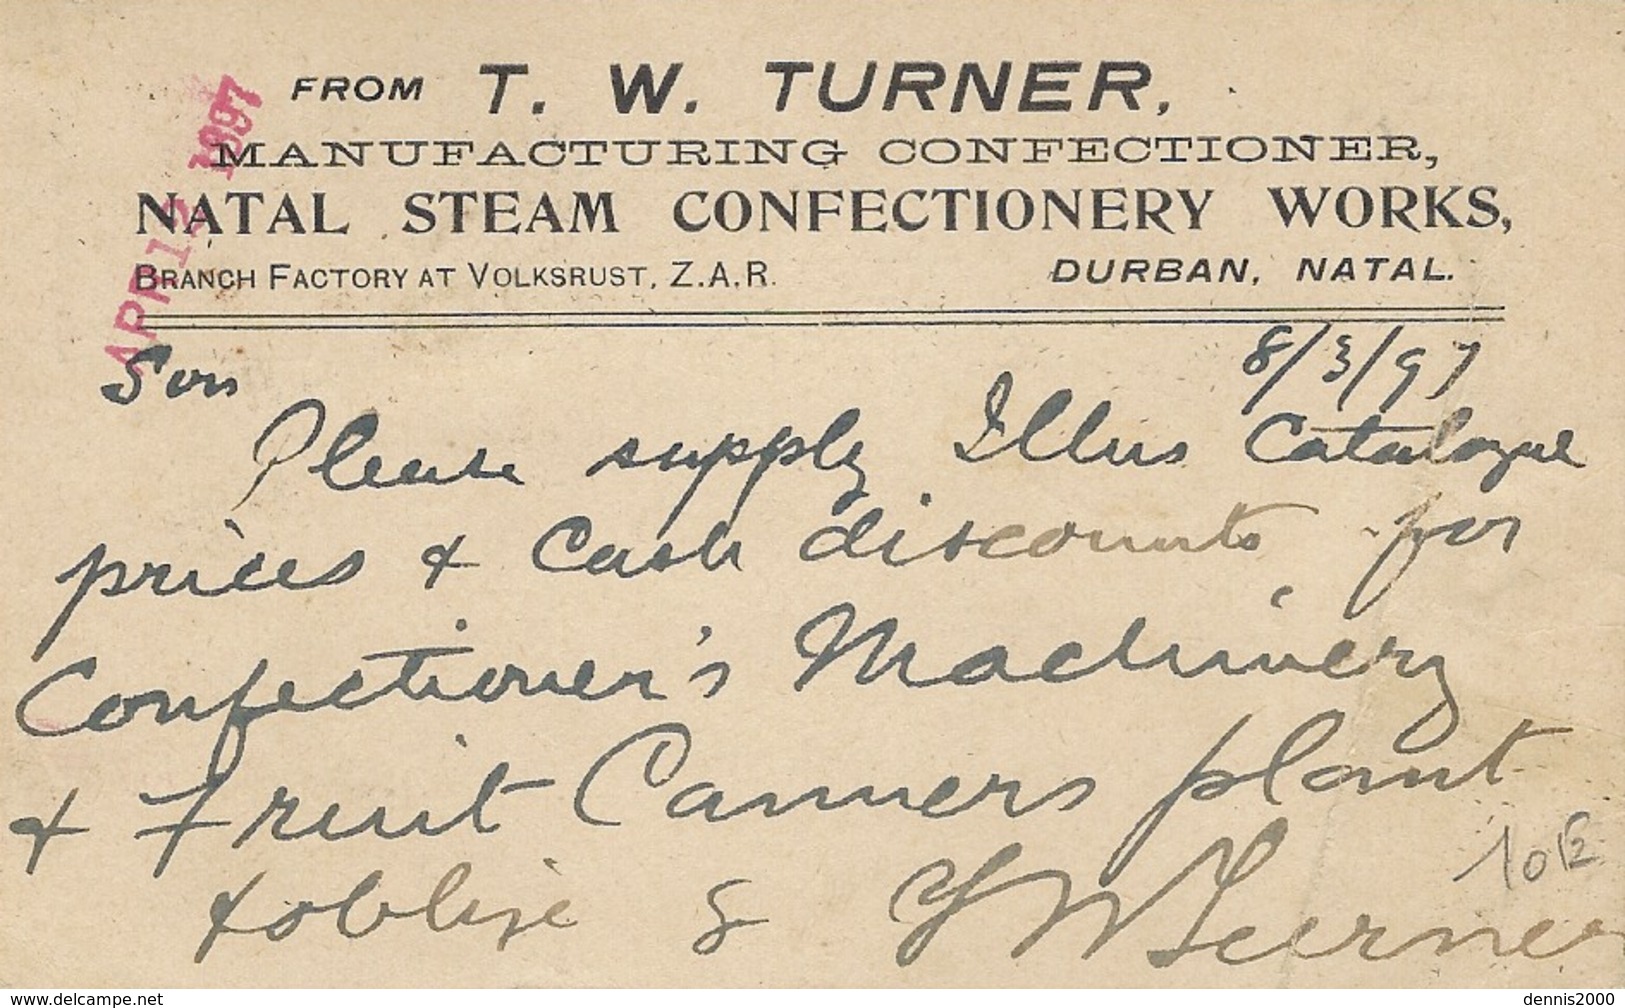 FROM T. W. TURNER,
MANUFACTURING CONFECTIONER,
NATAL STEAM CONFECTIONERY WORKS,
BRANCH FACTORY AT VOLKSRUST, Z.A.R. DURBAN, NATAL.
APR 12 1897
8/3/97
Sir
Please supply Illus Catalogue
prices & Cash discounts for
Confectioner's Machinery
& Fruit Canners plant
& oblige
T W Turner
www.delcampe.net dennis2000